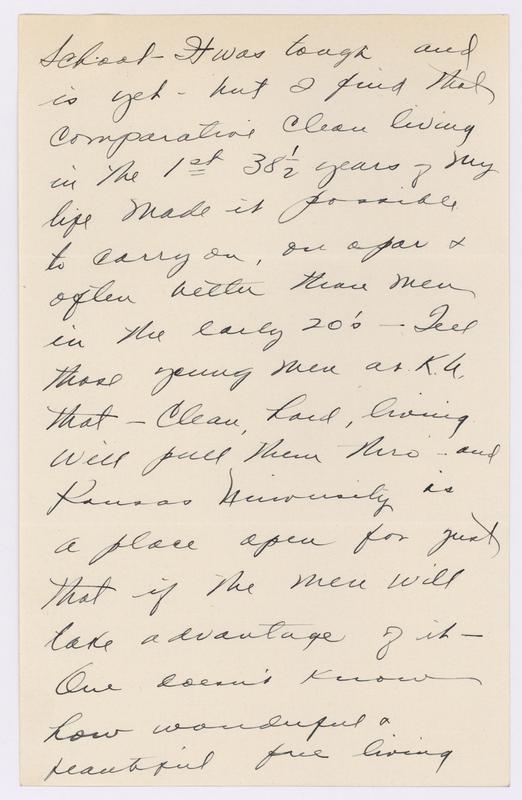 School - It was tough and
is yet - but I find that
comparative clean living
in the 1st 38½ years of my
life made it possible
to carry on, on a par &
often better than men
in the early 20's - Tell
those young men at K.U.
that - Clean, hard, living
will pull them thro - and
Kansas University is
a place open for just
that if the men will
take advantage of it -
One doesn't know
how wonderful &
beautiful free living